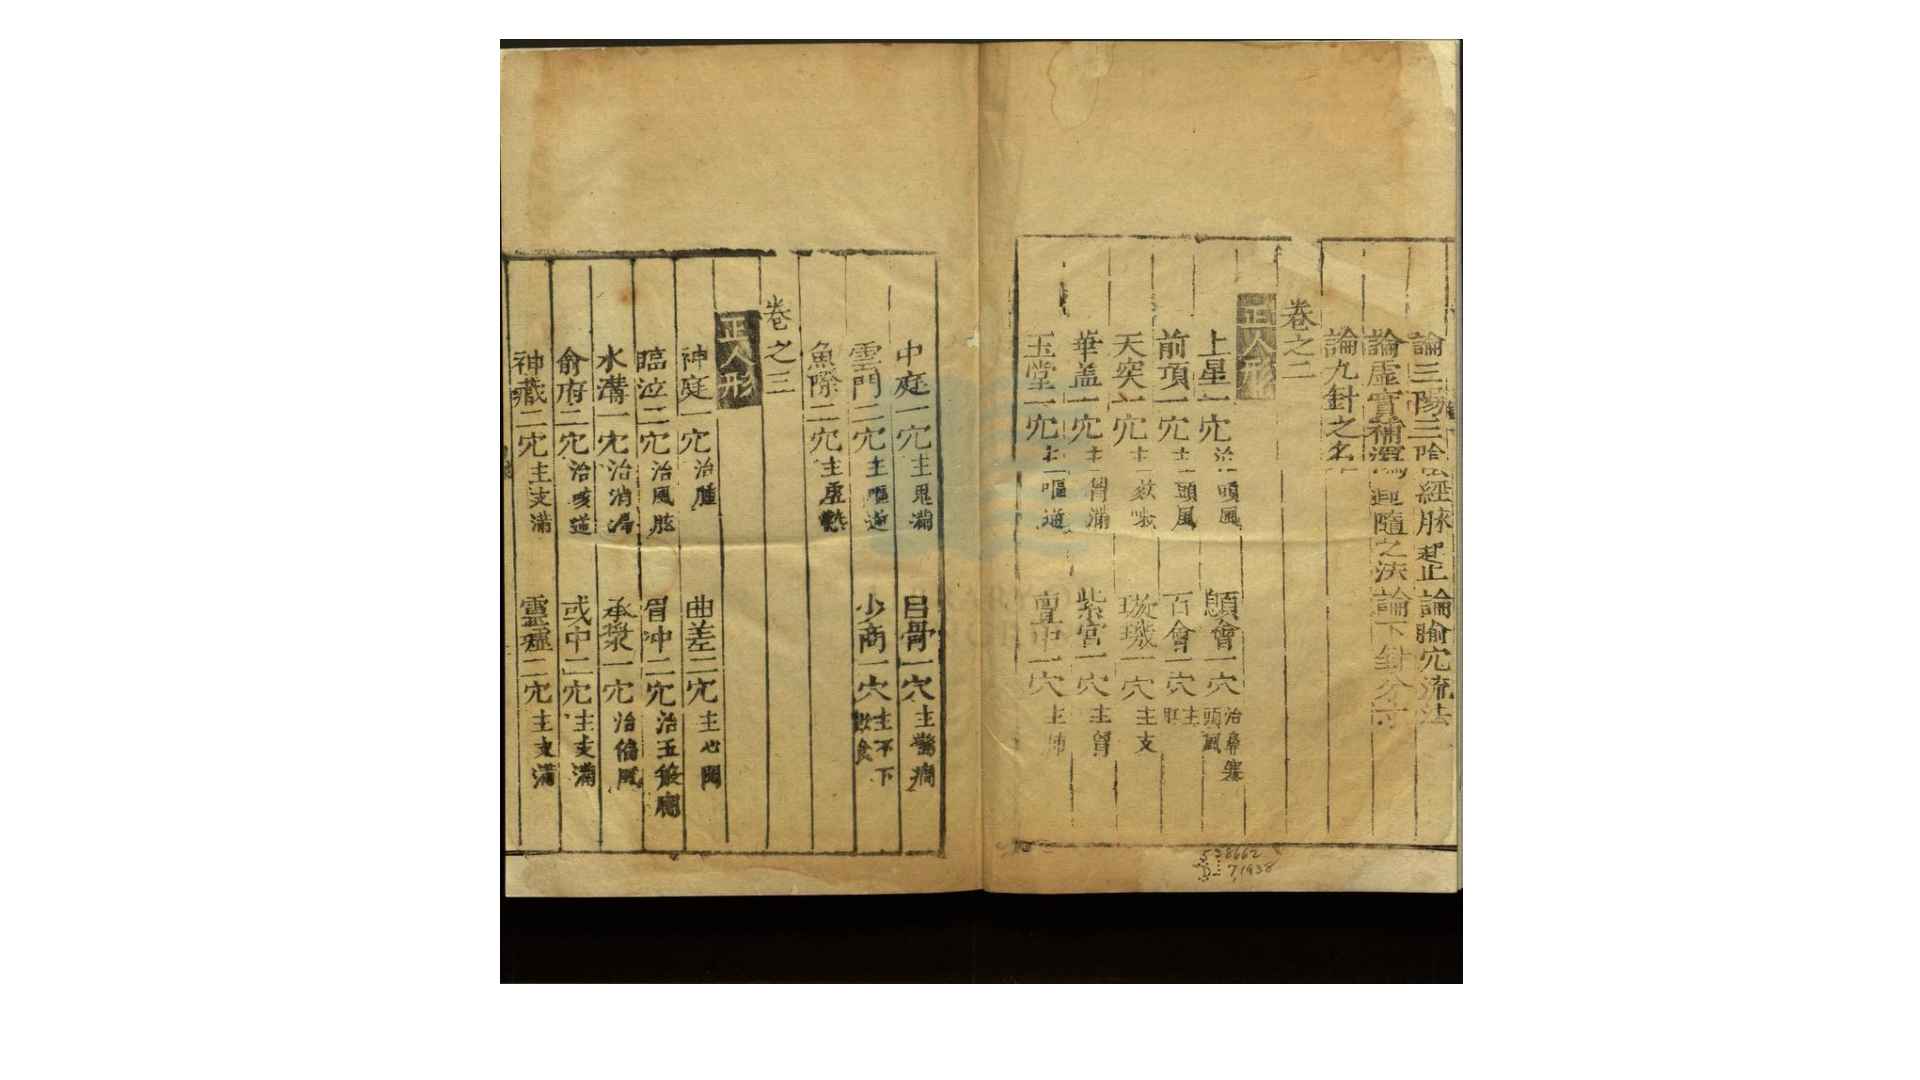 論三陽三陰經脉起止論腧穴流法
論虛實補瀉迎隨之法論下針分寸
論九針之名
卷之二
正人形
上星一穴治頭風 顖會一穴治鼻塞頭風
前項一穴主頭風 百會一穴主
天突一穴主欬嗽 璇璣一穴主支
華盖一穴主胷滿 紫宮一穴主胷
玉堂一穴主嘔逆 亶中一穴主肺
中庭一穴主鬼滿 巨骨一穴主驚癇
雲門二穴主嘔逆 少商一穴主不下飲食
魚際二穴主虛熱
卷之三
正人形
神庭一穴治腫 曲差二穴主心悶
臨泣二穴治風眩 眉冲二穴治五般癇
水溝一穴治消渴 承漿一穴治偏風
俞府二穴治咳逆 或中二穴主支滿
神藏二穴主支滿 靈墟二穴主支滿
538662
D=7,1938